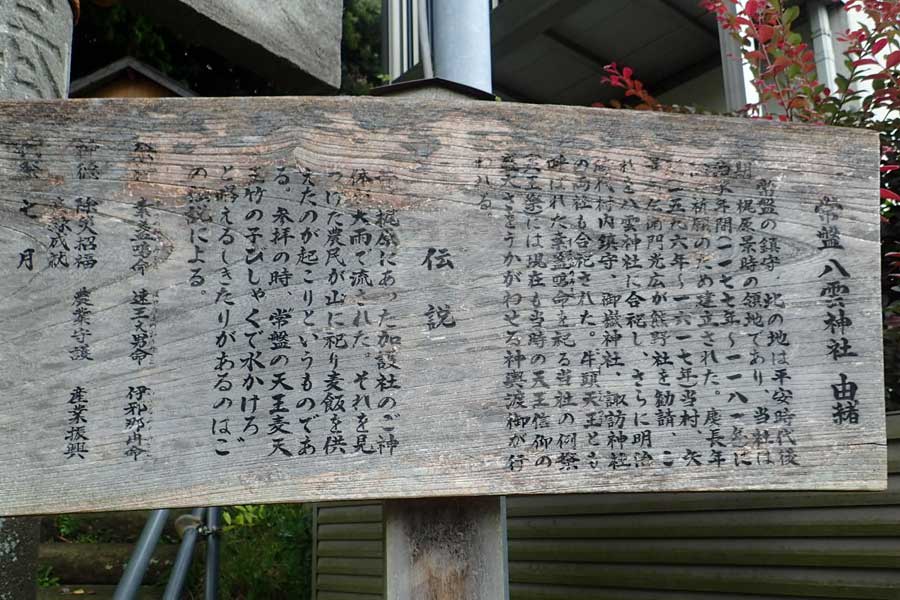 常盤八雲神社 由緒
常盤の鎮守、此の地は平安時代後
期 梶原景時の領地であり、当社は
治承年間一一七七年〜一一八一年に
祈願のため建立された。慶長年
一五九六年〜一六一七年当村、矢
左衛門光広が熊野社を勧請、こ
れを八雲神社に合祀し、さらに明治
代村内鎮守 御嶽神社 諏訪神社
の両社も合祀された。牛頭天王とも
呼ばれた素盞嗚命を祀る当社の例祭
天王祭には現在も当時の天王信仰の
大きさをうかがわせる神輿渡御が行
わ八る
伝説
梶原にあった加護社のご神
体 大雨で流された。それを見
つけた農民が山に祀り麦飯を供
えたのが起こりというものであ
る。参拝の時、常盤の天王麦天
王竹の子びしゃくで水かけろ
と唱えるしきたりがあるのはこ
の伝説による。
素盞嗚命 速玉之男命 伊邪那冉命
除災招福 農業守護 産業振興
成就
七月